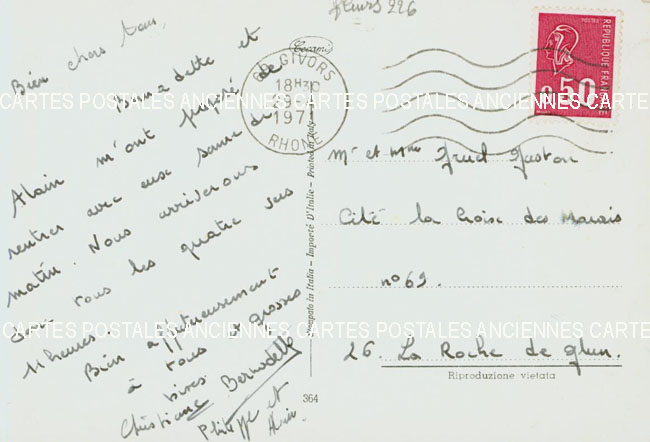 fleurs 226
Cecami
GIVORS
18H
1971
RHONE
POSTES
REPUBLIQUE FRANCAISE
0,50
Bien chers tous
Bernadette et
Alain m'ont proposé de
rentrer avec eux samedi
matin. Nous arriverons
tous les quatre vers
11 heures.
Bien affectueusement
à tous grosses
bises
Christiane Bernadette
Philippe et
Alain
CARTES POSTALES ANCIENNES CARTES POSTALES ANCIENNES CARTES POSTALES ANCIENNES CARTE
CARTES POSTALES ANCIENNES CARTES POSTALES ANCIENNES CARTES POSTALES ANCIENNES CARTE
in Italia - Importé D'Italie - Printed in Italy
Mr et Mme Gaston
Cité la Croix des Marais
no 62.
26. La Roche de Glun.
Riproduzione vietata
364